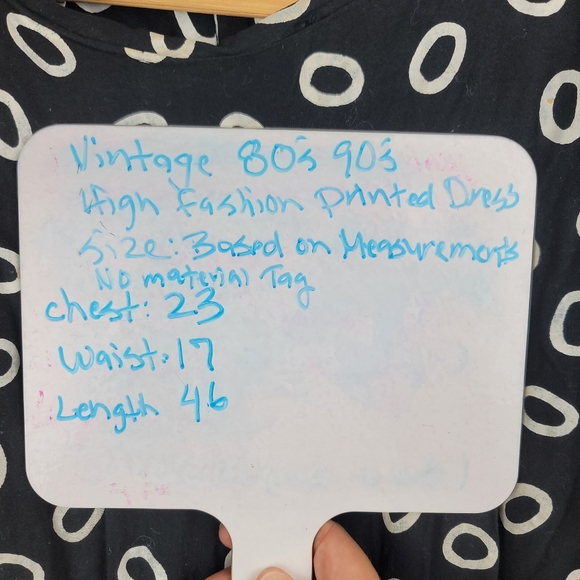 Vintage 80's 90's
High Fashion Printed Dress
Size: Based on Measurements
No material Tag
Chest: 23
Waist: 17
Length 46